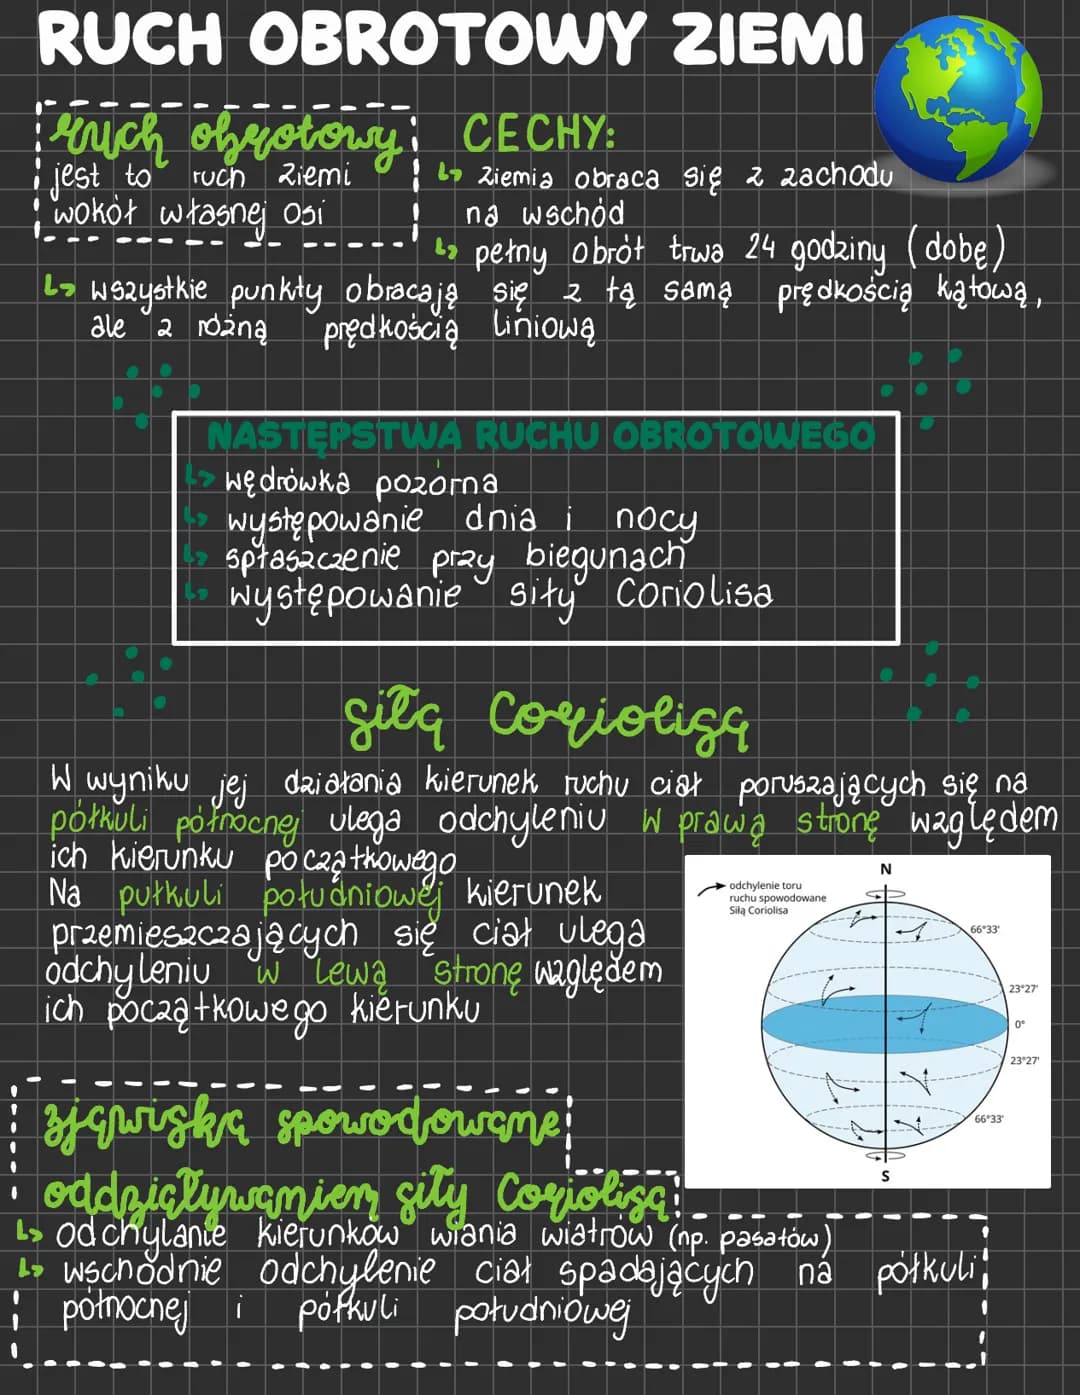 RUCH OBROTOWY ZIEMI
ruch obrotowy
jest to ruch Ziemi
wokół własnej osi
CECHY:
Ziemia obraca się z zachodu
na wschód
pełny obrót trwa 24 godziny (dobę)
wszystkie punkty obracają się z tą samą prędkością kątową,
ale z różną prędkością liniową
NASTĘPSTWA RUCHU OBROTOWEGO
wędrówka pozorna
występowanie dnia i nocy
spłaszczenie przy biegunach
występowanie siły Coriolisa
siła Coriolisa
W wyniku jej działania kierunek ruchu ciał poruszających się na
półkuli północnej ulega odchyleniu w prawą stronę względem
ich kierunku początkowego
Na pułkuli południowej kierunek
przemieszczających się ciał ulega
odchyleniu w lewą stronę względem
ich początkowego kierunku
odchylenie toru
ruchu spowodowane
Siłą Coriolisa
N
66°33'
23°27'
0°
23°27'
66°33'
S
zjawiska spowodowane
oddziaływaniem siły Coriolisa:
odchylanie kierunków wiania wiatrów (np. pasatów)
wschodnie odchylenie ciał spadających na półkuli
północnej i półkuli południowej